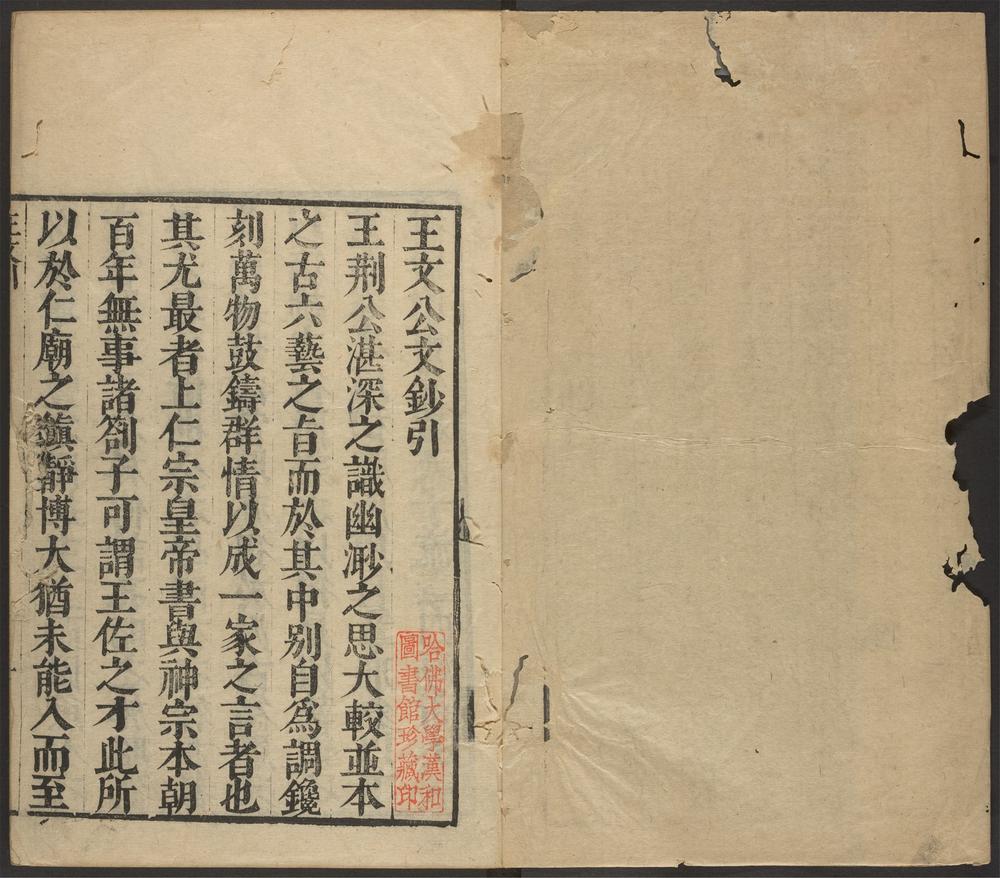 王文公文鈔引
王荆公湛深之識幽渺之思大較並本
之古六藝之旨而於其中別自爲調鑱
刻萬物鼓鑄群情以成一家之言者也
其尤最者上仁宗皇帝書與神宗本朝
百年無事諸劄子可謂王佐之才此所
以於仁廟之鎭靜博大猶未能入而至
哈佛大學漢和
圖書館珍藏印